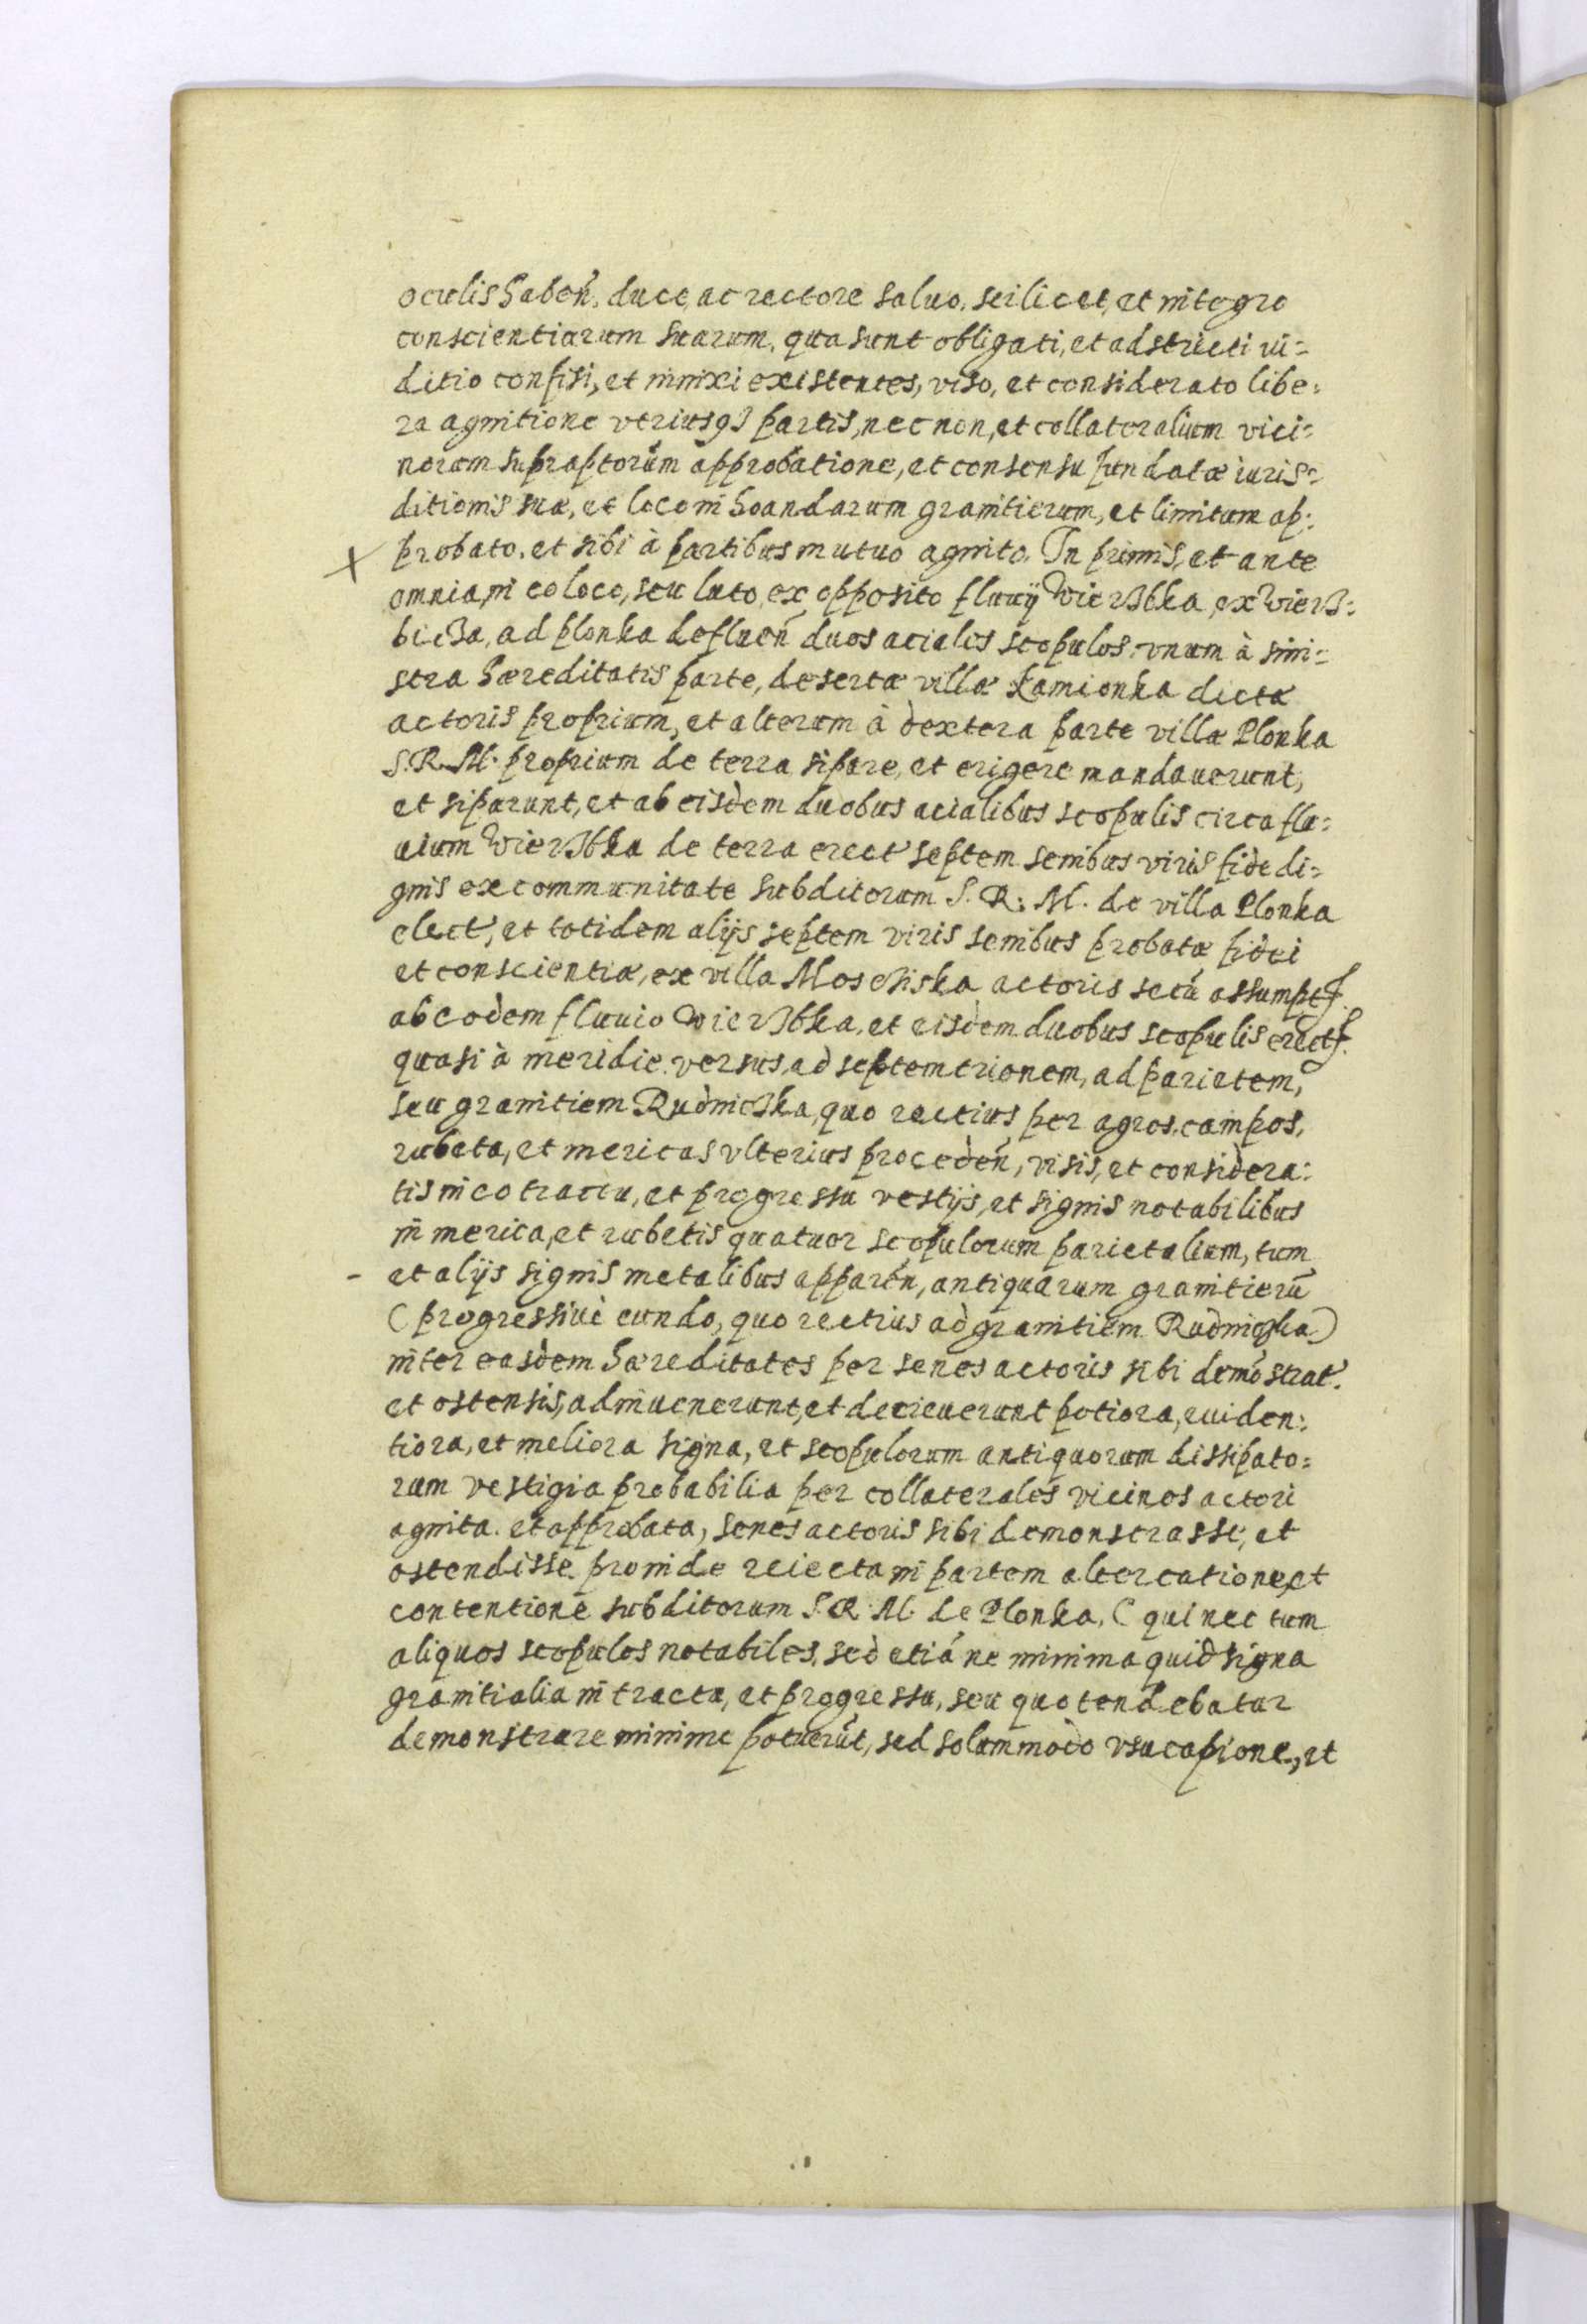 oculis haben̄, duce, ac rectore saluo, scilicet, et integro
conscientiarum suarum, qua sunt obligati, et adstricti iu=
ditio confisi, et innixi existentes, viso, et considerato libe=
ra agnitione vtriusq3 partis, nec non, et collateralium vici=
norum supraptorum approbatione, et consensu fundatæ iuris=
ditionis suæ, et loco inhoandarum granitierum, et limitum ap=
probato, et sibi à partibus mutuo agnito. In primis, et ante
omnia, in eo loco, seu luto, ex opposito fluuij Wierzbka, ex Wierz=
bicza, ad plonka defluen̄ duos aciales scopulos, vnum à sini=
stra hæreditatis parte, desertæ villæ Kamionka dictæ
actoris proprium, et alterum à dextera parte villæ Plonka
S. R. M. proprium de terra sipare, et erigere mandauerunt,
et siparunt, et ab eisdem duobus acialibus scopulis circa flu=
uium Wierzbka de terra erect' septem senibus viris fide di=
gnis ex communitate subditorum S. R. M. de villa Plonka
elect', et totidem alijs septem viris senibus probatæ fidei
et conscientiæ, ex villa Mosciska actoris secū assumpt.
ab eodem fluuio Wierzbka, et eisdem duobus scopulis erect.
quasi à meridie versus, ad septemtrionem, ad parietem,
seu granitiem Rudniczka, quo rectius per agros, campos,
rubeta, et mericas vlterius proceden̄, visis, et considera=
tis in eo tractu, et progressu vestijs, et signis notabilibus
in merica, et rubetis quatuor scopulorum parietalium, tum
et alijs signis metalibus apparen̄, antiquarum granitierū
(progressiuè eundo, quo rectius ad granitiem Rudniczka)
inter easdem hæreditates per senes actoris sibi demōstrat'.
et ostensis, adinuenerunt, et decreuerunt potiora, euiden=
tiora, et meliora signa, et scopulorum antiquorum dissipato=
rum vestigia probabilia per collaterales vicinos actori
agnita et approbata, senes actoris sibi demonstrasse, et
ostendisse proinde reiecta in partem altercatione, et
contentione subditorum S. R. M. de Plonka, (qui nec tum
aliquos scopulos notabiles, sed etiā ne minima quid signa
granitialia in tractu, et progressu, seu quo tendebatur
demonstrare minime potuerūt, sed solummodo vsucapione, et